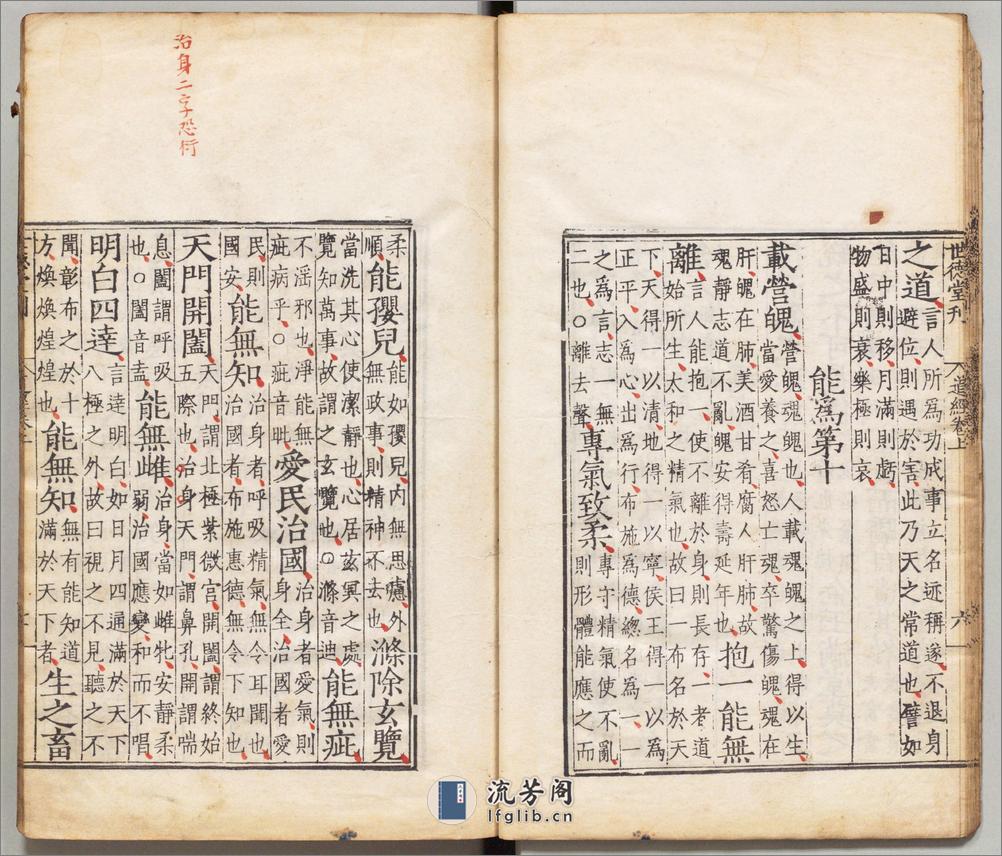 世德堂刊 道經卷上 六
之道言人所為功成事立名迹稱遂不退身避位則遇於害此乃天之常道也譬如
日中則移月滿則虧物盛則衰樂極則哀
能爲第十
載營魄營魄魂魄也人載魂魄之上得以生當愛養之喜怒亡魂卒驚傷魄魂在
肝魄在肺美酒甘肴腐人肝肺故魂靜志道不亂魄安得壽延年也抱一能無
離言人能抱一使不離於身則長存一者道始所生太和之精氣也故曰一布名於天
下天得一以清地得一以寧侯王得一以為正平入為心出為行布施為德總名為一一
之為言志一無二也○離去聲專氣致柔專守精氣使不亂則形體能應之而
治身二字恐衍
柔順能孾兒能如孾兒內無思慮外無政事則精神不去也滌除玄覽
當洗其心使潔靜也心居玄冥之處覽知萬事故謂之玄覽也○滌音迪能無疵
不滛邪也淨能無疵病乎○疵音玼愛民治國治身者愛氣則身全治國者愛
民則國安能無知治身者呼吸精氣無令耳聞也治國者布施惠德無令下知也
天門開闔天門謂北極紫微宮開闔謂終始五際也治身天門謂鼻孔開謂喘
息闔謂呼吸也○闔音盍能無雌治身當如雌牝安靜柔弱治國應變和而不唱
明白四達言達明白如日月四通滿於天下八極之外故曰視之不見聽之不
聞彰布之於十方煥煥煌煌也能無知無有能知道滿於天下者生之畜
流芳阁
lfglib.cn